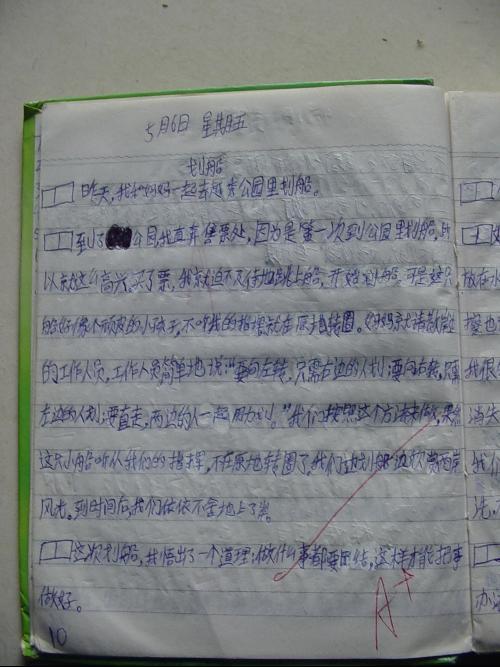 5月6日 星期五
划船
昨天,我和妈妈一起去公园里划船。
到了公园,我直奔售票处,因为是第一次到公园里划船,所
以就这么高兴。买了票,我就迫不及待地跳上船,开始划船,可是这只
船好像个顽皮的小孩子,不听我的指挥就在原地转圈。妈妈就请教岸边
的工作人员,工作人员简单地说:“要向左转,只需右边的人划;要向右转,
左边的人划;要直走,两边的人一起用力划。”我们按照这个方法来做,果然
这只小船听从我们的指挥,不在原地转圈了。我们边划船边欣赏两岸
风光。到时间后,我们依依不舍地上了岸。
这次划船,我悟出了一个道理:做什么事都要团结,这样才能把事
做好。
A+
10
放在水
我很
消失
我们
先,